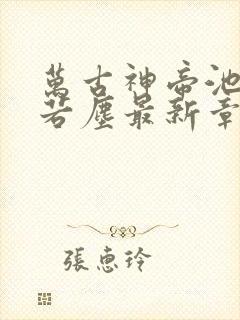 萬古神帝池
若塵最新章
張惠玲